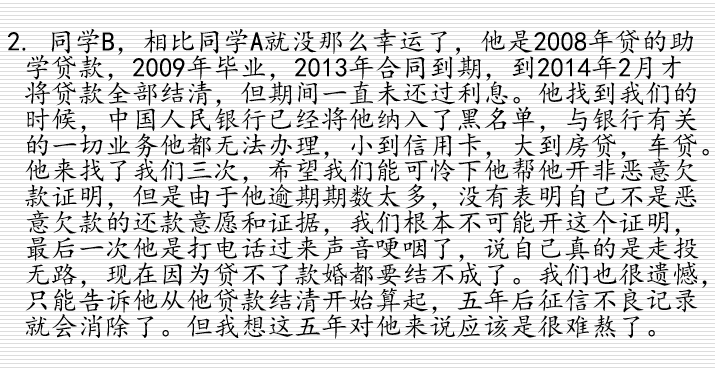 2. 同学B，相比同学A就没那么幸运了，他是2008年贷的助
学贷款，2009年毕业，2013年合同到期，到2014年2月才
将贷款全部结清，但期间一直未还过利息。他找到我们的
时候，中国人民银行已经将他纳入了黑名单，与银行有关
的一切业务他都无法办理，小到信用卡，大到房贷，车贷。
他来找了我们三次，希望我们能可怜下他帮他开非恶意欠
款证明，但是由于他逾期期数太多，没有表明自己不是恶
意欠款的还款意愿和证据，我们根本不可能开这个证明，
最后一次他是打电话过来声音哽咽了，说自己真的是走投
无路，现在因为贷不了款婚都要结不成了。我们也很遗憾，
只能告诉他从他贷款结清开始算起，五年后征信不良记录
就会消除了。但我想这五年对他来说应该是很难熬了。